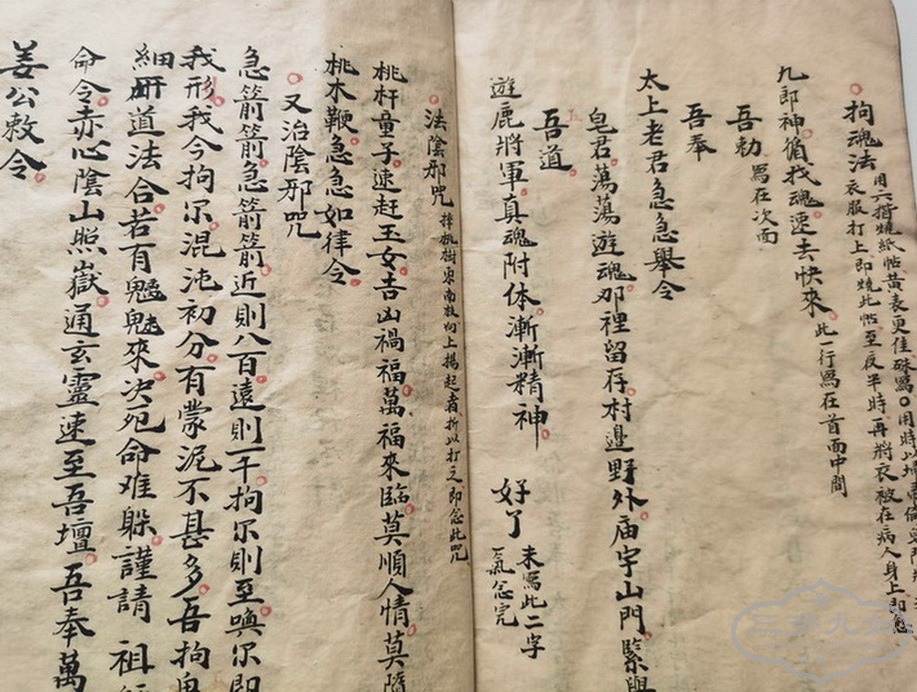 拘魂法
用六揩燒紙帖黃表更佳硃寫〇用時以
衣服打上即燒此帖至夜半時再將衣被在病人身上即愈
九郎神循找魂速去快來 此一行寫在首面中間
吾勅 寫在次面
吾奉
太上老君急急舉令
皂君蕩蕩遊魂那裡留存村邊野外庙宇山門緊
吾道
遊鹿將軍真魂附体漸漸精神 好了 末寫此二字
一氣念完
法陰邪咒 擇桃樹東南数向上揚起者折以打之即念此咒
桃杆童子速赶玉女吉凶禍福萬福來臨莫順人情莫
桃木鞭急急如律令
又治陰邪咒
急箭箭急箭箭近則八百遠則一千拘尔則至喚尔即
我形我今拘尔混沌初分有蒙泥不甚多吾拘
細研道法合若有魑魅來决死命难躲謹請祖
命令赤心陰山照嶽通玄靈速至吾壇吾奉萬
姜公敕令